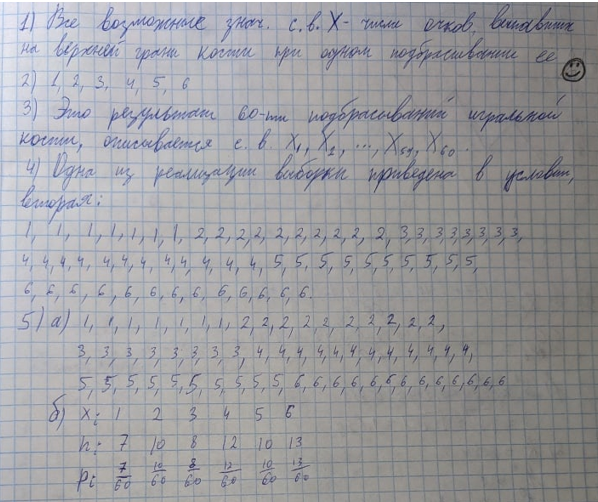 1) Все возможные знач. с.в. X - числа очков, выпавших
на верхней грани кости при одном подбрасывании ее
2) 1, 2, 3, 4, 5, 6
3) Это результат 60-ти подбрасываний игральной
кости, описывается с.в. X₁, X₂, ..., X₅₉, X₆₀.
4) Одна из реализации выборки приведена в условии,
вторая:
1, 1, 1, 1, 1, 1, 1, 2, 2, 2, 2, 2, 2, 2, 2, 2, 2, 3, 3, 3, 3, 3, 3, 3, 3,
4, 4, 4, 4, 4, 4, 4, 4, 4, 4, 4, 4, 5, 5, 5, 5, 5, 5, 5, 5, 5, 5,
6, 6, 6, 6, 6, 6, 6, 6, 6, 6, 6, 6, 6.
5) а) 1, 1, 1, 1, 1, 1, 1, 2, 2, 2, 2, 2, 2, 2, 2, 2, 2,
3, 3, 3, 3, 3, 3, 3, 3, 4, 4, 4, 4, 4, 4, 4, 4, 4, 4, 4, 4,
5, 5, 5, 5, 5, 5, 5, 5, 5, 5, 6, 6, 6, 6, 6, 6, 6, 6, 6, 6, 6, 6, 6
б) xᵢ 1 2 3 4 5 6
nᵢ 7 10 8 12 10 13
pᵢ 7/60 10/60 8/60 12/60 10/60 13/60